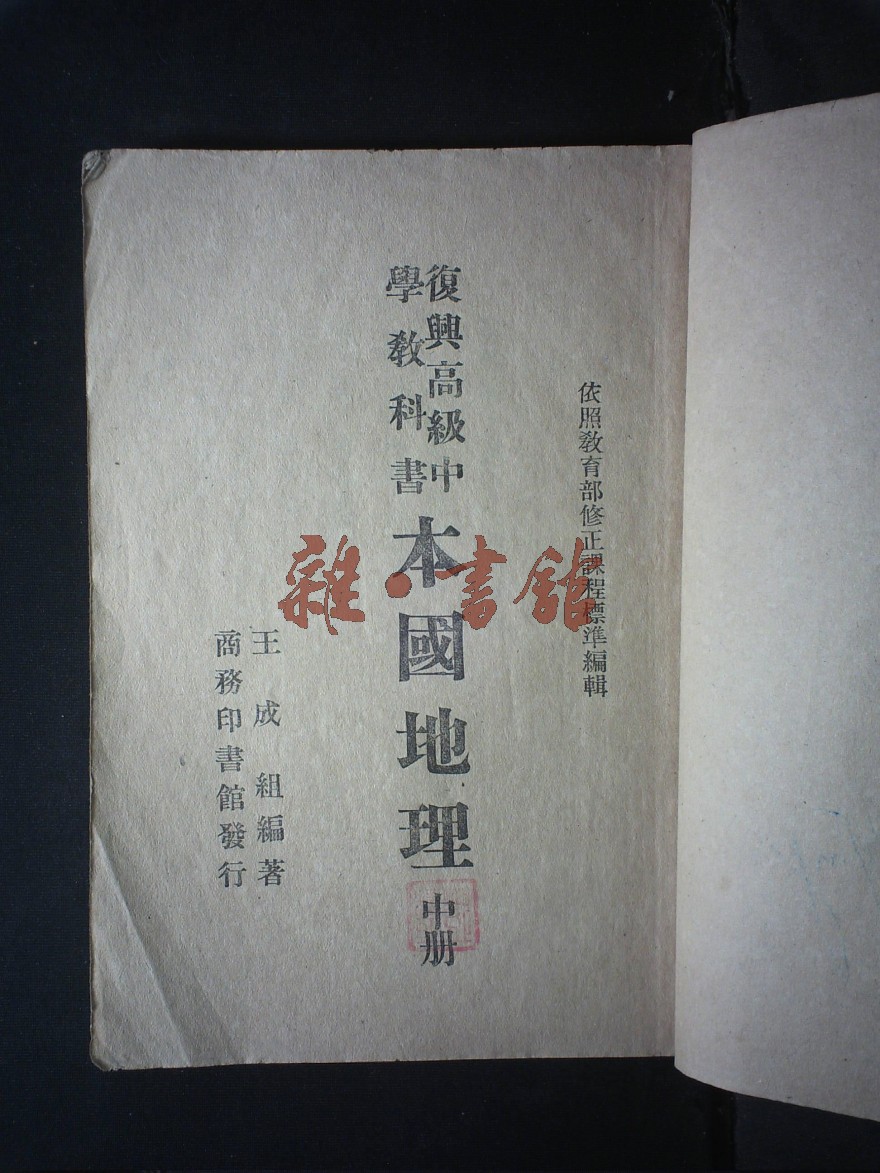 依照教育部修正課程標準編輯
復興高級中
學教科書
本國地理
中册
王成組編著
商務印書館發行
雜·書館